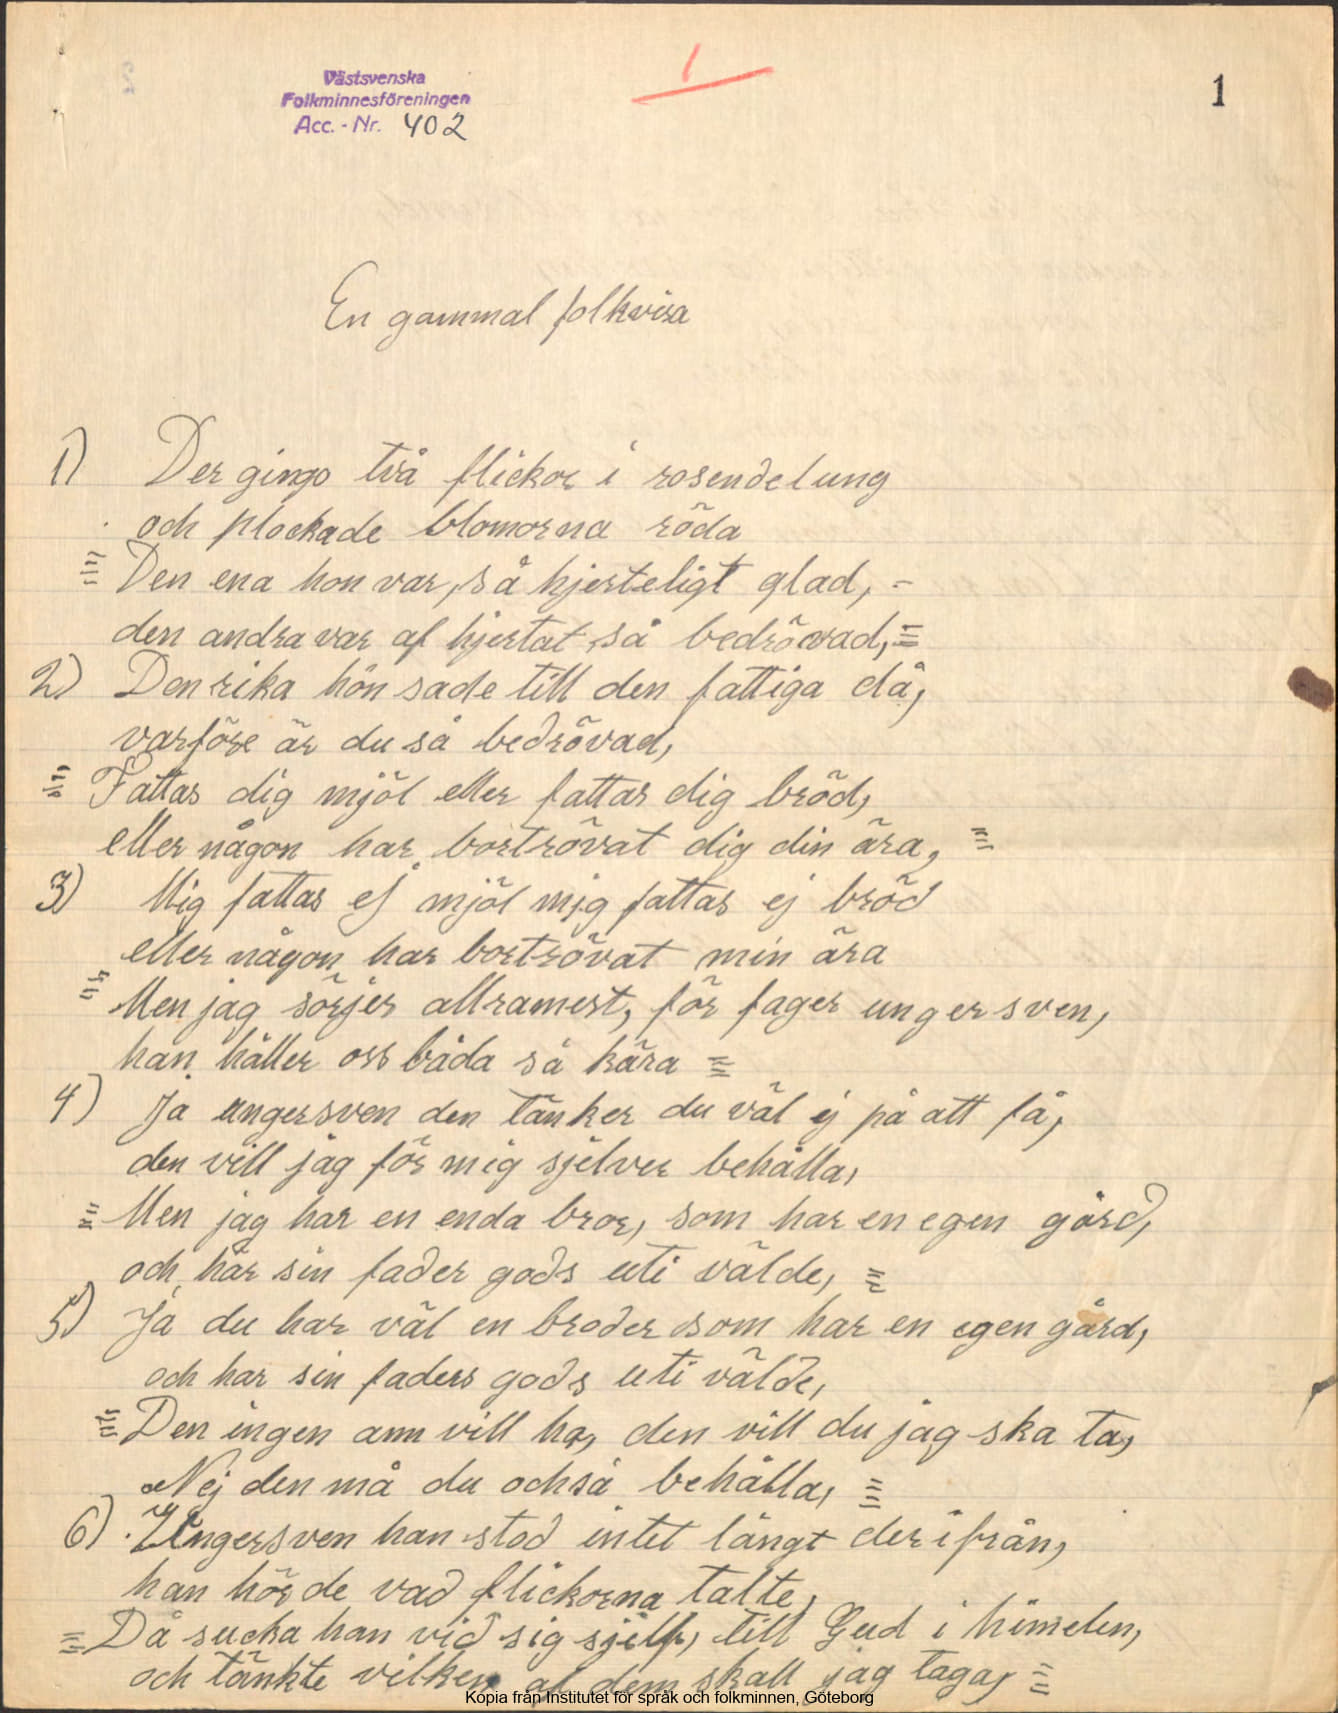 Västsvenska
Folkminnesföreningen
Acc.-Nr. 402
1
1
En gammal folkvisa
1) Der gingo två flickor i rosendelung
och plockade blomorna röda
Den ena hon var, så hjerteligt glad, -
den andra var af hjertat så bedrövad,
2) Den rika hon sade till den fattiga då,
varföre är du så bedrövad,
Fattas dig mjöl eller fattas dig bröd,
eller någon har bortrövat dig din ära,
3) Mig fattas ej mjöl mig fattas ej bröd
eller någon har bortrövat min ära
Men jag sörjer allramest, för fager ungersven,
han håller oss båda så kära
4) Ja ungersven den tänker du väl ej på att få,
den vill jag för mig sjelver behålla,
Men jag har en enda bror, som har en egen gård,
och har sin fader gods uti välde,
5) Ja du har väl en broder som har en egen gård,
och har sin faders gods uti välde,
Den ingen ann vill ha, den vill du jag ska ta,
Nej den må du också behålla,
6) Ungersven han stod intet långt derifrån,
han hörde vad flickorna talte,
Då sucka han vid sig sjelf, till Gud i himelen,
och tänkte vilken af dem skall jag taga,
Kopia från Institutet för språk och folkminnen, Göteborg